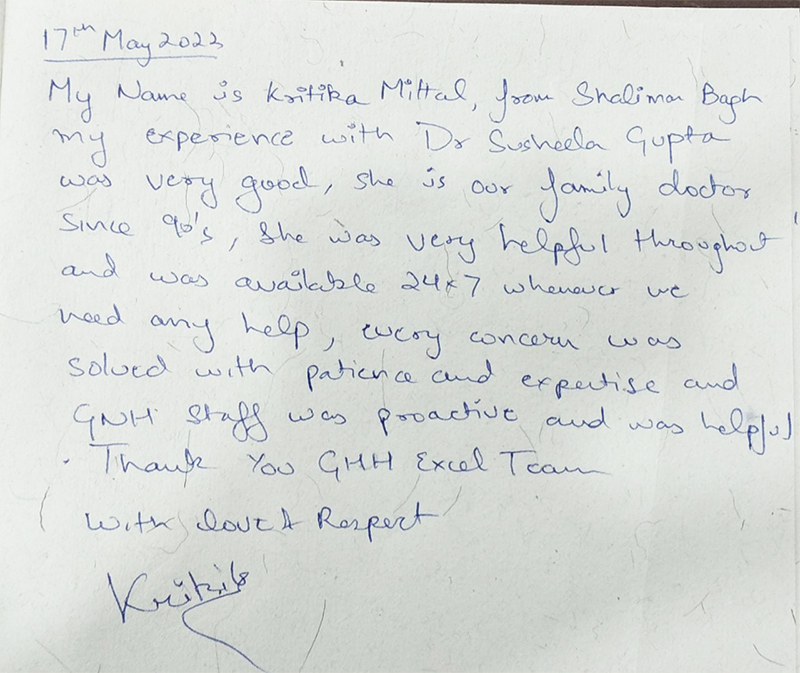 17th May 2023
My Name is Kritika Mittal, from Shalimar Bagh
my experience with Dr Susheela Gupta
was very good, she is our family doctor
since 90's, she was very helpful throughout
and was available 24x7 whenever we
need any help, every concern was
solved with patience and expertise and
GNH Staff was proactive and was helpful
. Thank You GHH Excel Team
With Love & Respect
Kritika